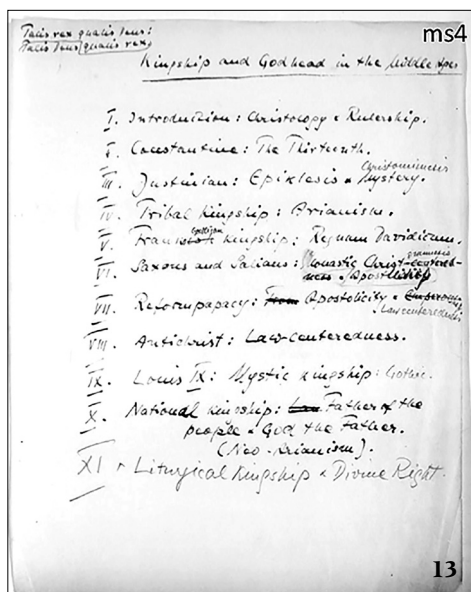 Talis rex qualis Deus:
Talis Deus qualis rex
ms4
Kingship and Godhead in the Middle Ages
I. Introduction: Christology & Rulership.
II. Constantine: The Thirteenth.
Christomimesis
III. Justinian: Epiklesis & Mystery.
IV. Tribal Kingship: Arianism.
V. Frankish Kingship: Regnum Davidicum.
VI. Saxons and Salians: Monastic Christ-centered-
ness & Apostleship
VII. Reformpapacy: From Apostolicity &
Lawcenteredness
VIII. Antichrist: Law-centeredness.
IX. Louis IX: Mystic Kingship: Gothic.
X. National Kingship: Father of the
people & God the Father.
(Neo-Arianism).
XI Liturgical Kingship & Divine Right.
13